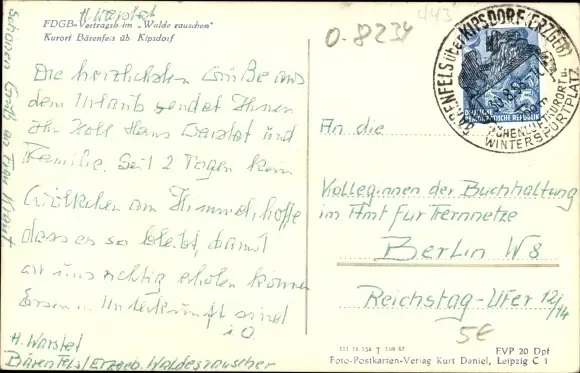 H. Warstat
FDGB-Vertragsh. im "Walde rauschen"
Kurort Bärenfels üb Kipsdorf
O-8234
443
BÄRENFELS über KIPSDORF (ERZGEB)
HÖHENLUFTKURORT u.
WINTERSPORTPLATZ
DEUTSCHE
DEMOKRATISCHE REPUBLIK
Die herzlichsten Grüße aus
dem Urlaub sendet Ihnen
Ihr Koll Hans Warstat und
Familie. Seit 2 Tagen kein
Wölkchen am Himmel, hoffe
dass es so bleibt, damit
wir uns richtig erholen können
Essen u. Unterkunft sind
i O.
H. Warstat
Bärenfels/Erzgeb. Walderauschen
Schönen Gruß an Frau
An die
Kolleginnen der Buchhaltung
im Amt für Fernnetze
Berlin W8
Reichstag-Ufer 12/14
5€
EVP 20 Dpf
Foto-Postkarten-Verlag Kurt Daniel, Leipzig C 1